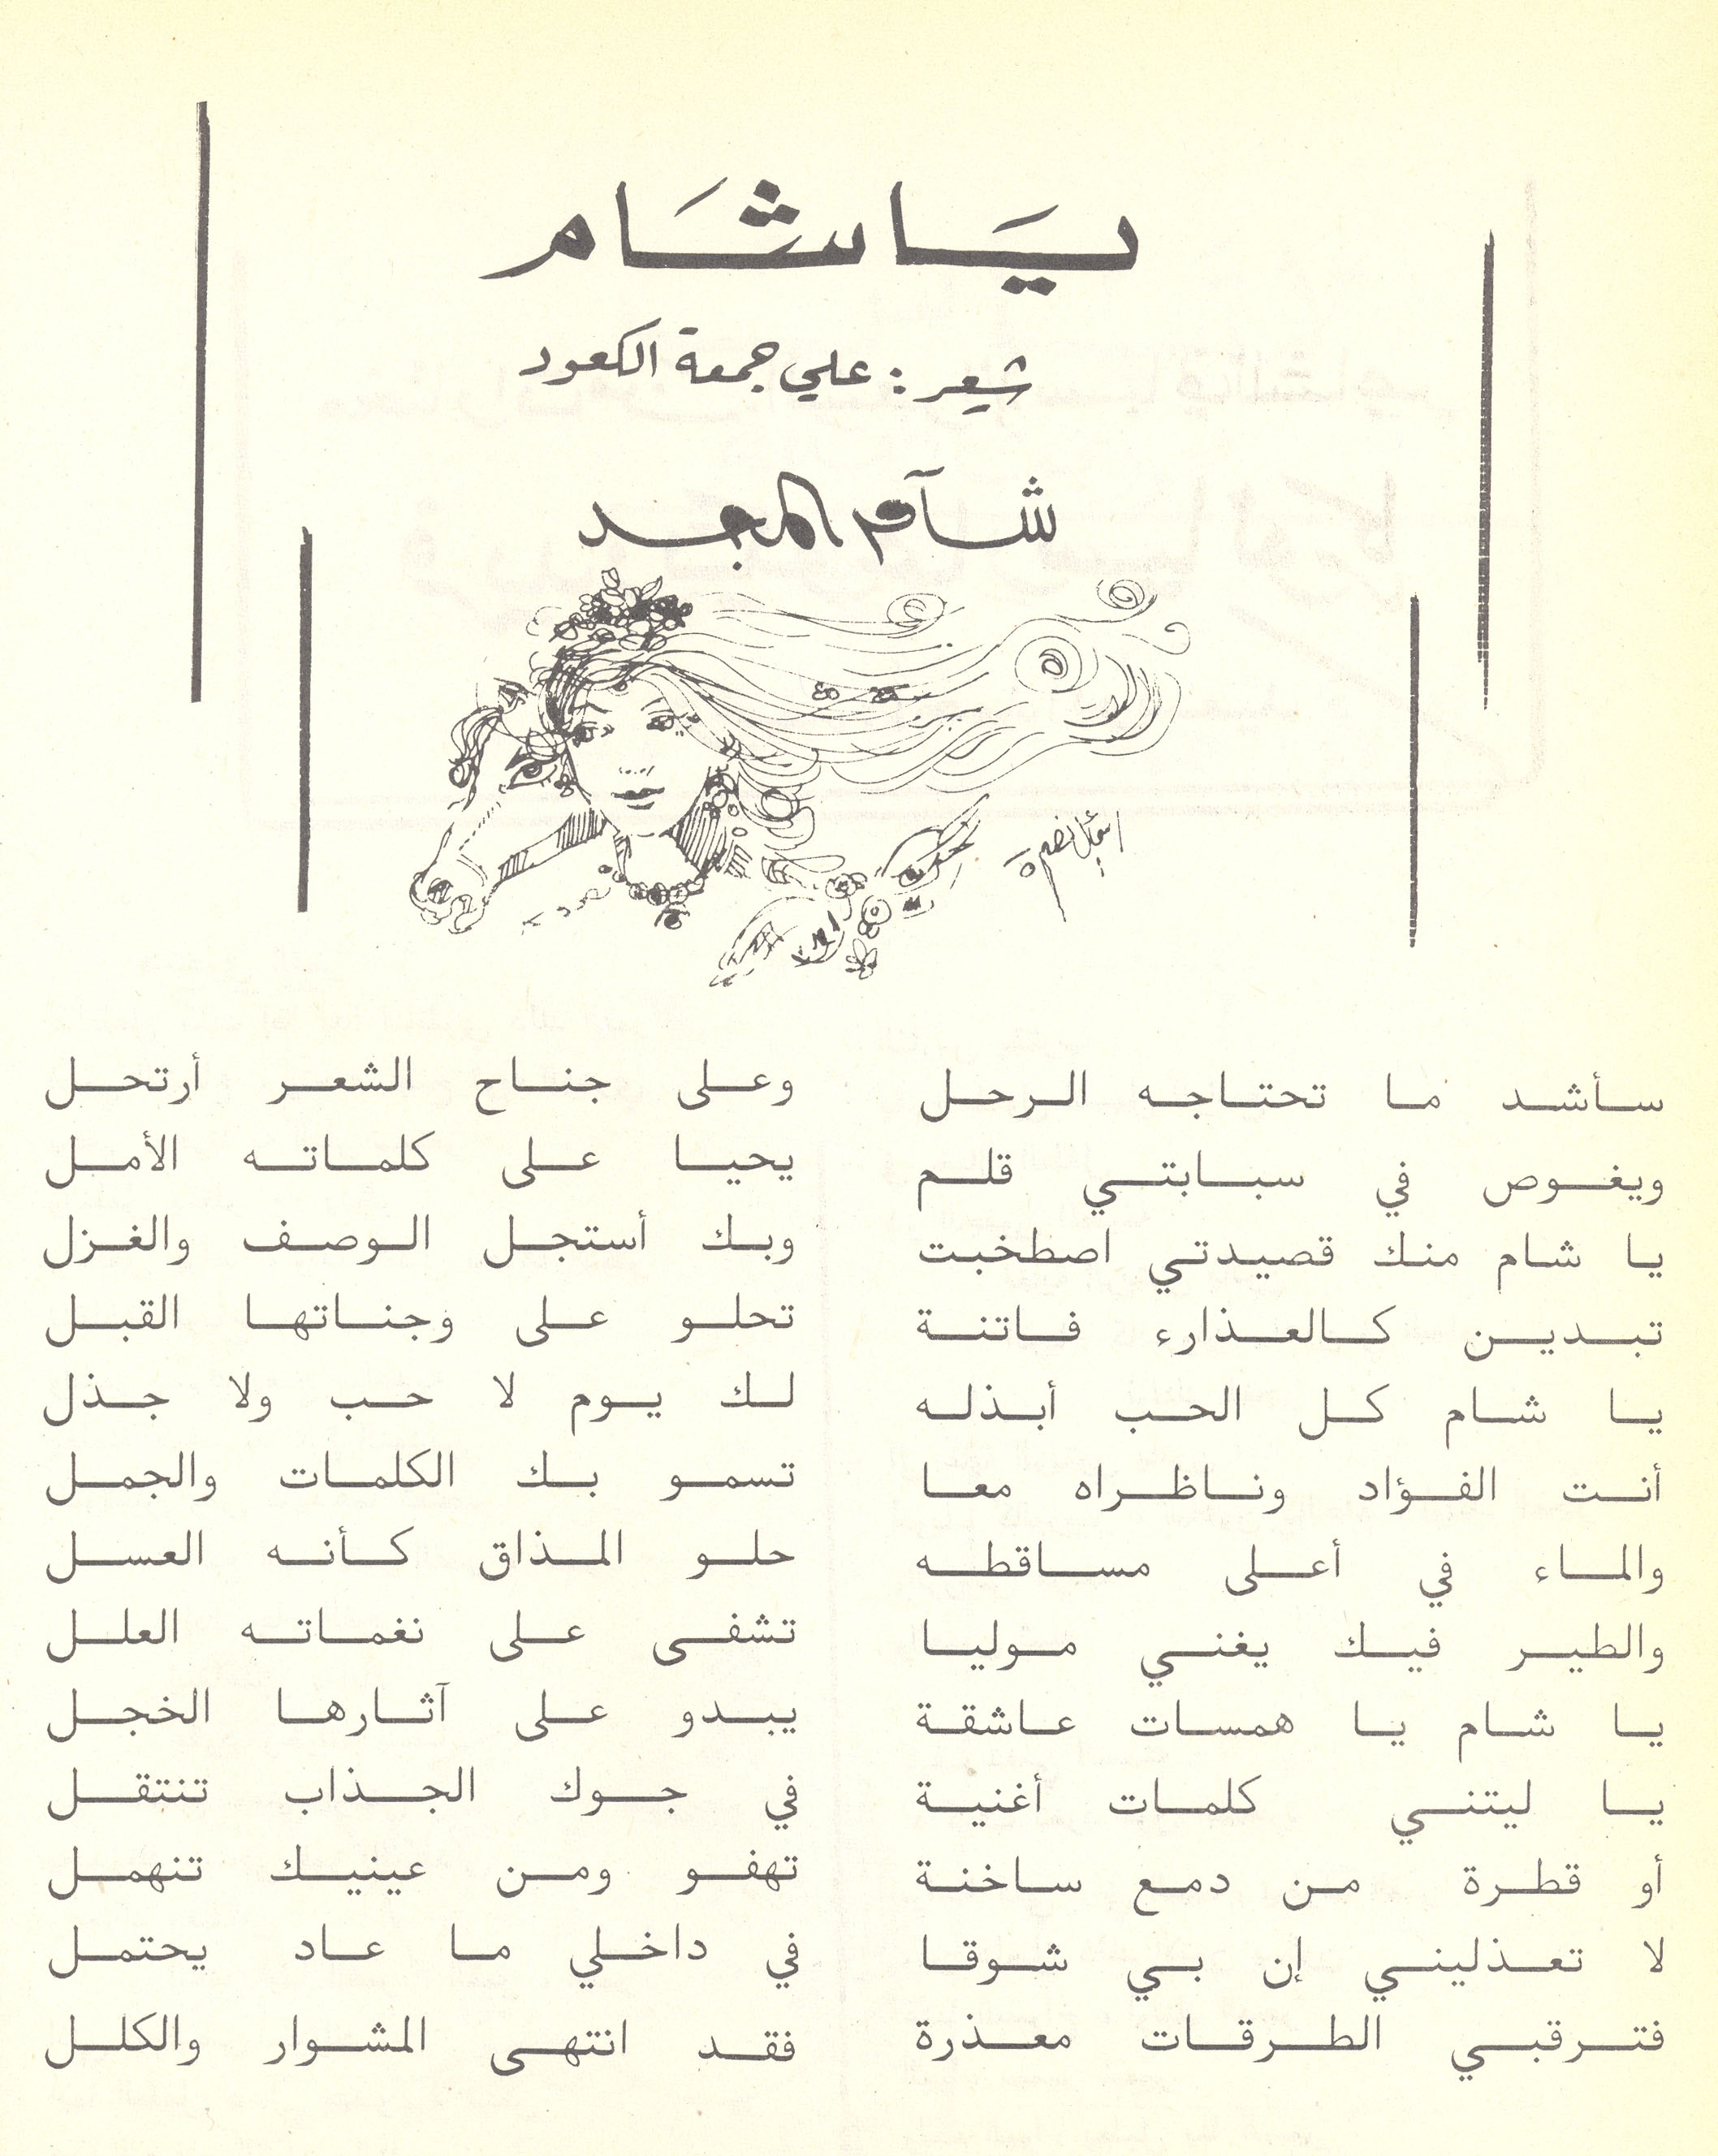 يا شام
شعر : علي جمعة الكعود
شآم المجد
اسماعيل نصرة
سأشد ما تحتاجه الرحل وعلى جناح الشعر أرتحل
ويغوص في سبابتي قلم يحيا على كلماته الأمل
يا شام منك قصيدتي اصطخبت وبك أستجل الوصف والغزل
تبدين كالعذارء فاتنة تحلو على وجناتها القبل
يا شام كل الحب أبذله لك يوم لا حب ولا جذل
أنت الفؤاد وناظراه معا تسمو بك الكلمات والجمل
والماء في أعلى مساقطه حلو المذاق كأنه العسل
والطير فيك يغني موليا تشفى على نغماته العلل
يا شام يا همسات عاشقة يبدو على آثارها الخجل
يا ليتني كلمات أغنية في جوك الجذاب تنتقل
أو قطرة من دمع ساخنة تهفو ومن عينيك تنهمل
لا تعذليني إن بي شوقا في داخلي ما عاد يحتمل
فترقبي الطرقات معذرة فقد انتهى المشوار والكلل